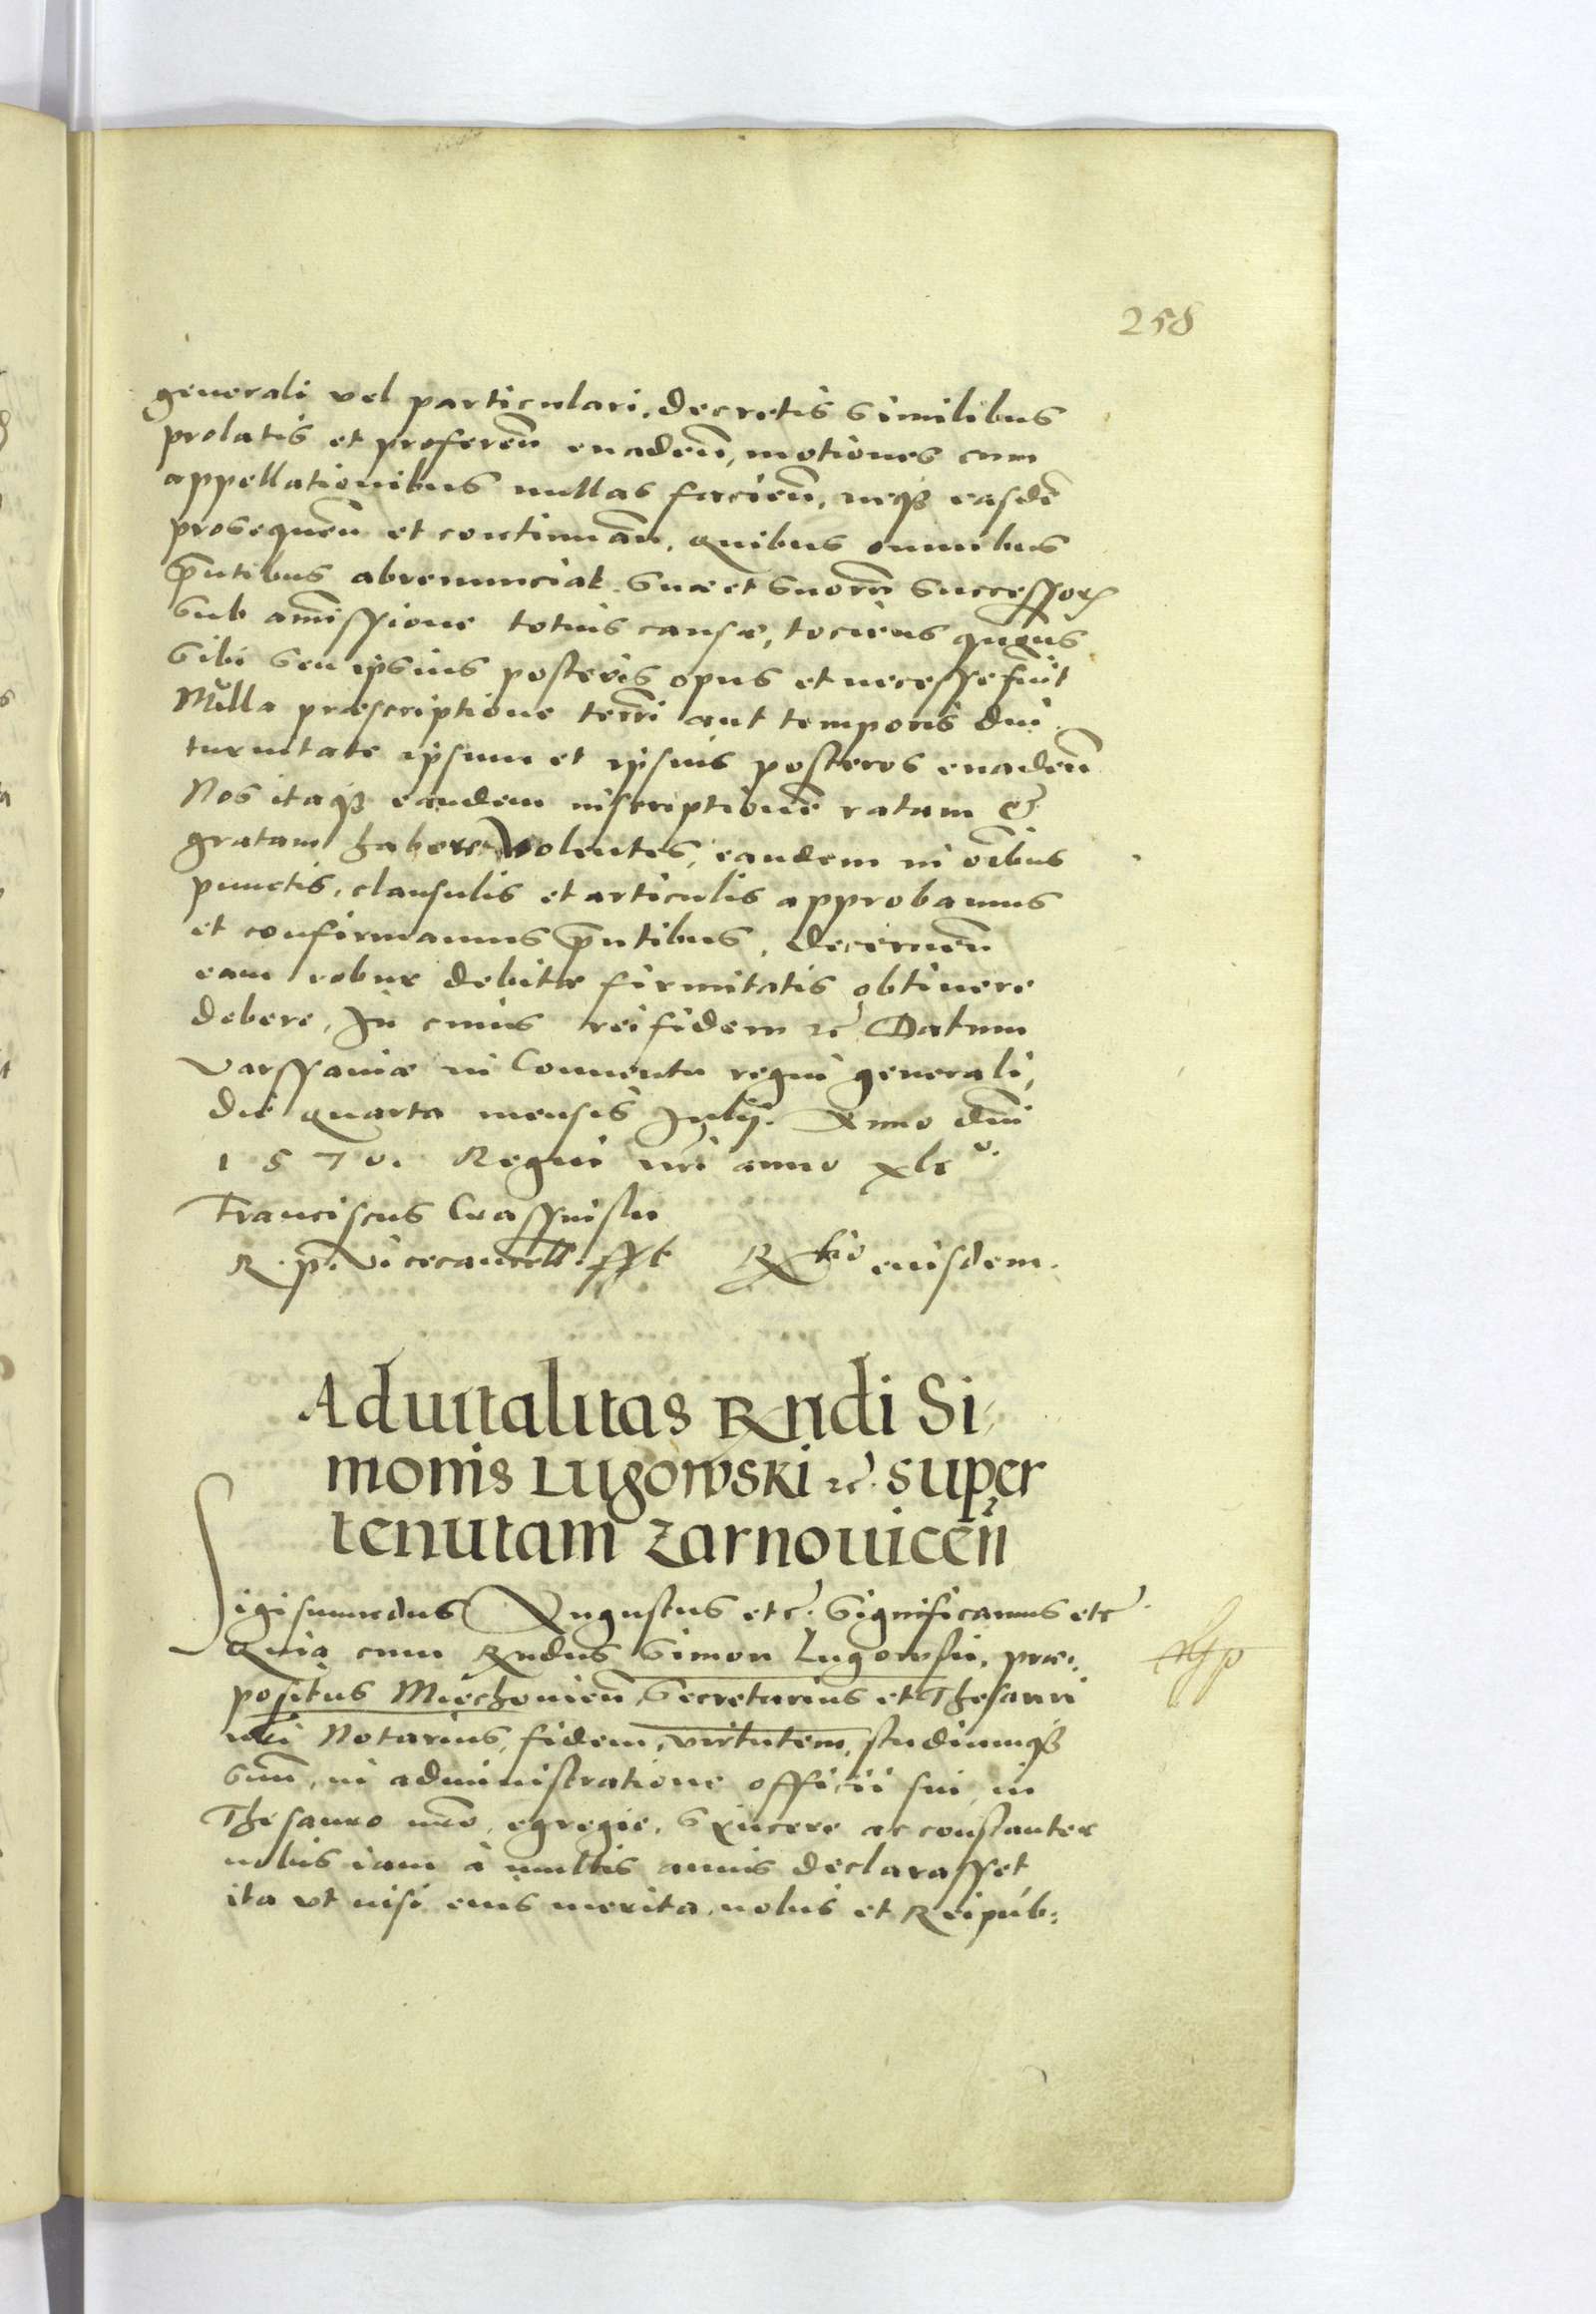 258
generali vel particulari, decretis similibus
prolatis et proferen̄ euaden̄, motiones cum
appellationibus nullas facien̄, neqꝫ easdē
prosequen̄ et continuan̄, quibus omnibus
p̄ntibus abrenunciat suo et suorū successorꝝ
sub amissione totius causæ, tociens quo
sibi seu ipsius posteris opus et necesse fuīt
Nulla præscriptione terrꝛi aut temporis diu
turnitate ipsum et ipsius posteros euaden̄
Nos itaqꝫ eandem inscriptionē ratam &
gratam habere volentes, eandem in oībus
punctis, clausulis et articulis approbamus
et confirmamus p̄ntibus, decernen̄
eam robur debitæ firmitatis obtinere
debere, In cuius rei fidem ꝛc̄ Datum
Varssauiæ in Conuentu regni generali,
die quarta mensis Julij. Anno dn̄i
1570. Regni nr̄i anno xliº.
Franciscus Crassinsky
R. p. Vicecancell. sst Rtio eiusdem.
Aduitalitas Rndi Si,
monis Lugowski ꝛc̄. super
tenutam Zarnouicen̄
Sigismundus Augustus etc̄. Significamus etc̄.
Quia cum Rndus Simon Lugowski, præ,
positus Miechouien̄, Secretarius et Thesauri
nr̄i Notarius, fidem, virtutem, studiumqꝫ
suū, in administratione officii sui, in
Thesauro nr̄o, egregie, syncere ac constanter
nobis iam à multis annis declarasset,
ita vt nisi eius merita, nobis et Reipub: